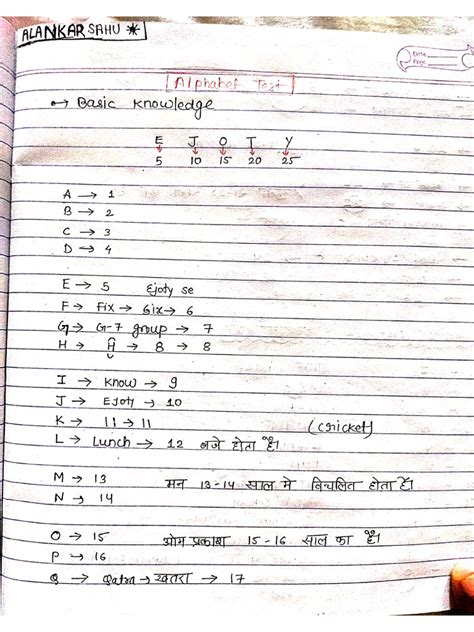 ALANKAR SAHU *
Date
Page
Alphabet Test
↦ Basic Knowledge
E J O T Y
↓ ↓ ↓ ↓ ↓
5 10 15 20 25
A → 1
B → 2
C → 3
D → 4
E → 5 Ejoty se
F → Fix → Six → 6
G → G-7 group → 7
H → H → 8 → 8
I → Know → 9
J → Ejoty → 10
K → 11 → 11 (cricket)
L → Lunch → 12 बजे होता है।
M → 13 मन 13-14 साल मे विचलित होता है।
N → 14
O → 15 ओम प्रकाश 15-16 साल का है।
P → 16
Q → Qatra → खतरा → 17